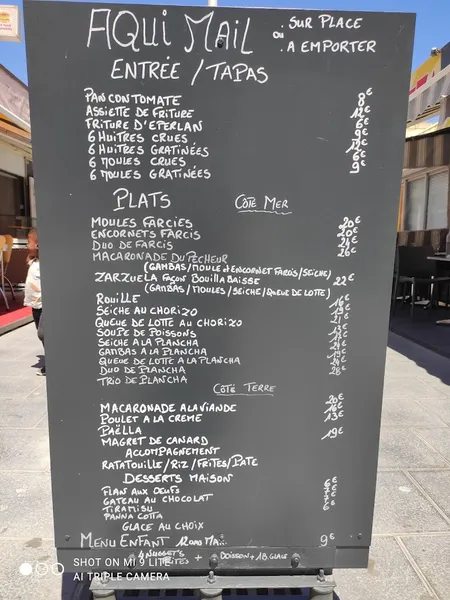 AQUI MAIL
. SUR PLACE
ou
. A EMPORTER
ENTRÉE / TAPAS
PAN CON TOMATE 8€
ASSIETTE DE FRITURE 12€
FRITURE D'EPERLAN 6€
6 HUITRES CRUES 9€
6 HUITRES GRATINÉES 12€
6 MOULES CRUES 6€
6 MOULES GRATINÉES 9€
PLATS
CÔTÉ MER
MOULES FARCIES 20€
ENCORNETS FARCIS 20€
DUO DE FARCIS 24€
MACARONADE DU PÊCHEUR 26€
(GAMBAS/MOULE et ENCORNET FARCIS/SEICHE)
ZARZUELA FAÇON BOUILLABAISSE 22€
(GAMBAS/MOULES/SEICHE/QUEUE DE LOTTE)
ROUILLE
SEICHE AU CHORIZO
QUEUE DE LOTTE AU CHORIZO
SOUPE DE POISSONS
SEICHE A LA PLANCHA
GAMBAS A LA PLANCHA
QUEUE DE LOTTE A LA PLANCHA
DUO DE PLANCHA
TRIO DE PLANCHA 28€
CÔTÉ TERRE
MACARONADE A LA VIANDE 20€
POULET A LA CREME 16€
PAËLLA 13€
MAGRET DE CANARD 19€
ACCOMPAGNEMENT
RATATOUILLE/RIZ/FRITES/PATE
DESSERTS MAISON
FLAN AUX OEUFS 6€
GATEAU AU CHOCOLAT
TIRAMISU
PANNA COTTA 6€
GLACE AU CHOIX
MENU ENFANT 9€
4 NUGGET'S + BOISSON + 1B. GLACE
FRITES
SHOT ON MI 9 LITE
AI TRIPLE CAMERA